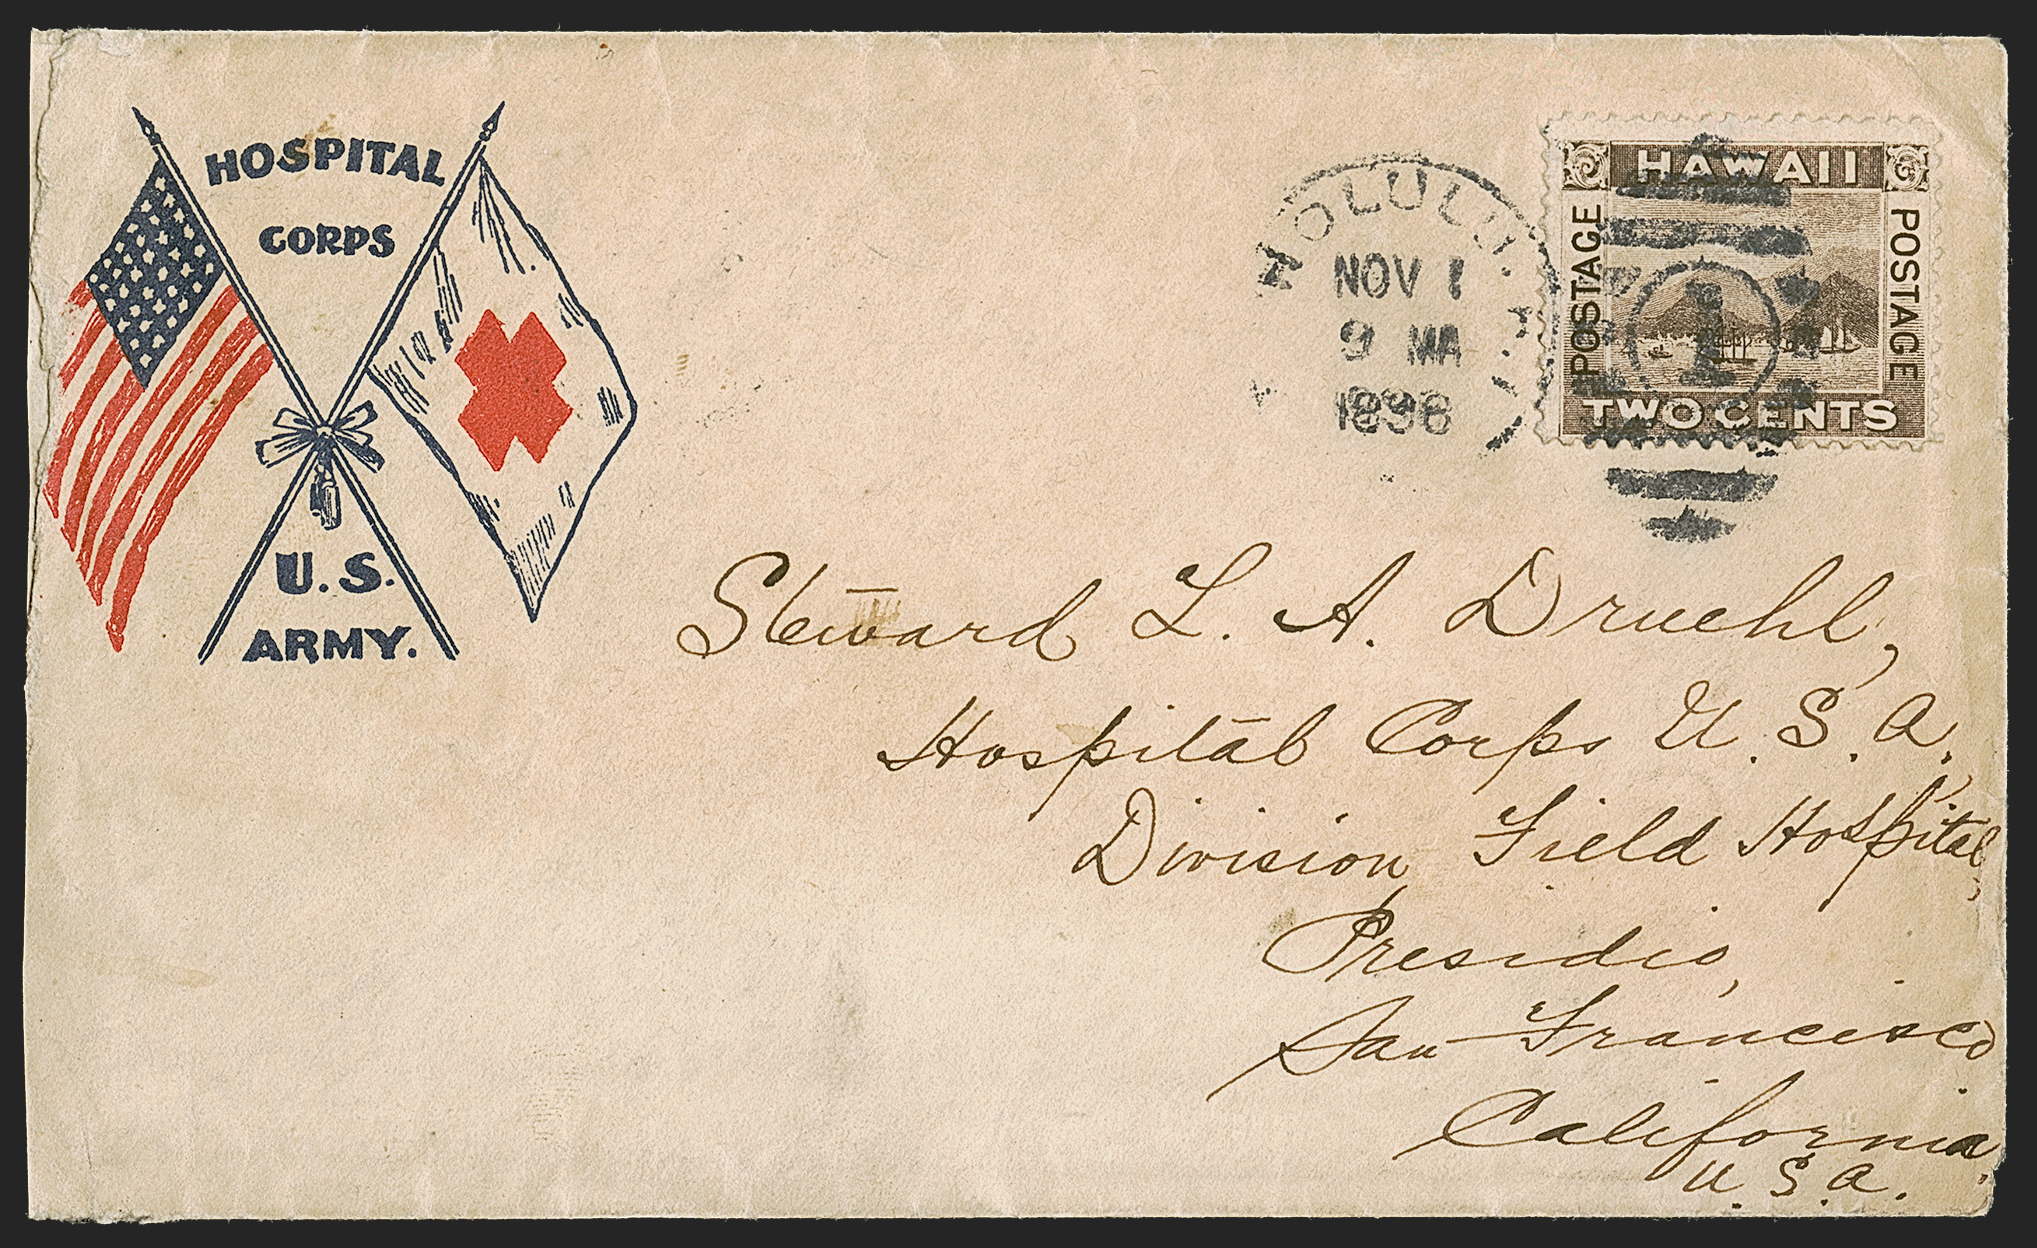 HOSPITAL
CORPS
U.S.
ARMY.
HONOLULU. H.I.
NOV 1
9 MA
1898
HAWAII
POSTAGE
POSTAGE
1
TWO CENTS
Steward L. A. Druehl,
Hospital Corps U. S. A.,
Division Field Hospital,
Presidio,
San Francisco
California.
U. S. A.